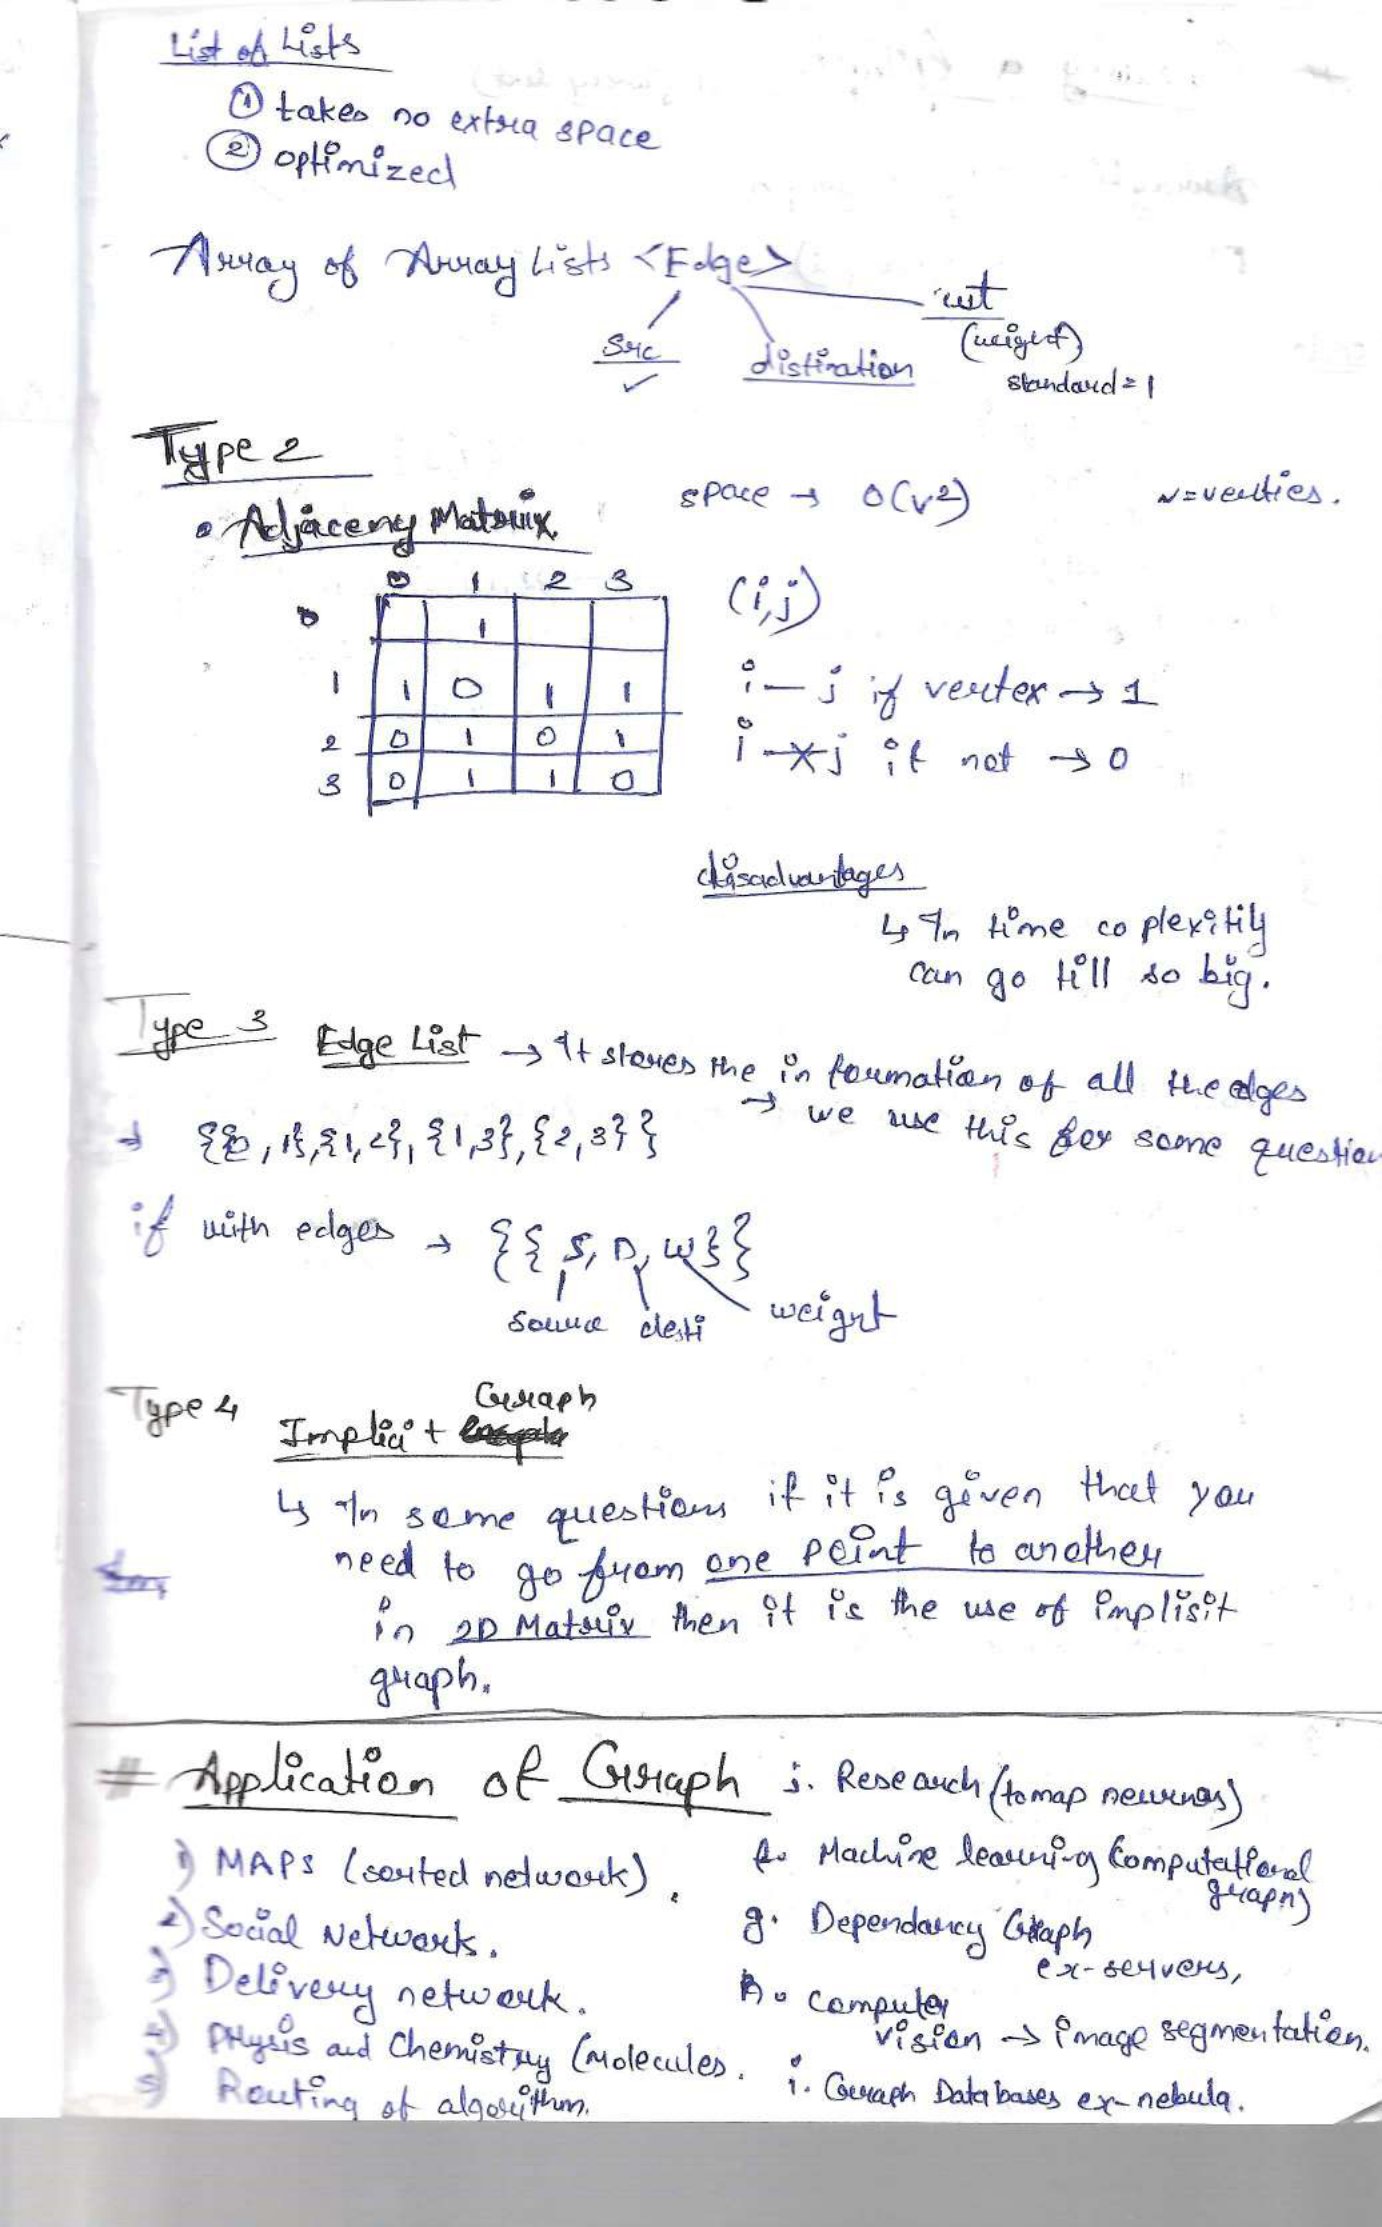 List of Lists
① takes no extra space
② optimized
Array of Array Lists <Edge>
src
distination
wt
(weight)
standard = 1
Type 2
• Adjaceny Matrix
space → O(v²)
v = verties.
0 1 2 3
0 1
1 1 0 1 1
2 0 1 0 1
3 0 1 1 0
(i,j)
i — j if vertex → 1
i -x j if not → 0
disadvantages
↳ In time coplexitiy
can go till so big.
Type 3 Edge List → It stores the information of all the edges
→ we use this for some question
→ {{0,1},{1,2},{1,3},{2,3}}
if with edges → {{S, D, W}}
source desti weight
Type 4
Implicit Graph
↳ In some questions if it is given that you
need to go from one point to another
in 2D Matrix then it is the use of implisit
graph.
# Application of Graph
1) MAPS (sorted network).
2) Social Network.
3) Delivery network.
4) PHysis and Chemistry (Molecules.
5) Routing of algorithm.
j. Research (to map neurnos)
f. Machine learning (Computational
graph)
g. Dependancy Graph
ex-servers,
h. computer
vision → image segmentation.
i. Graph Databases ex-nebula.